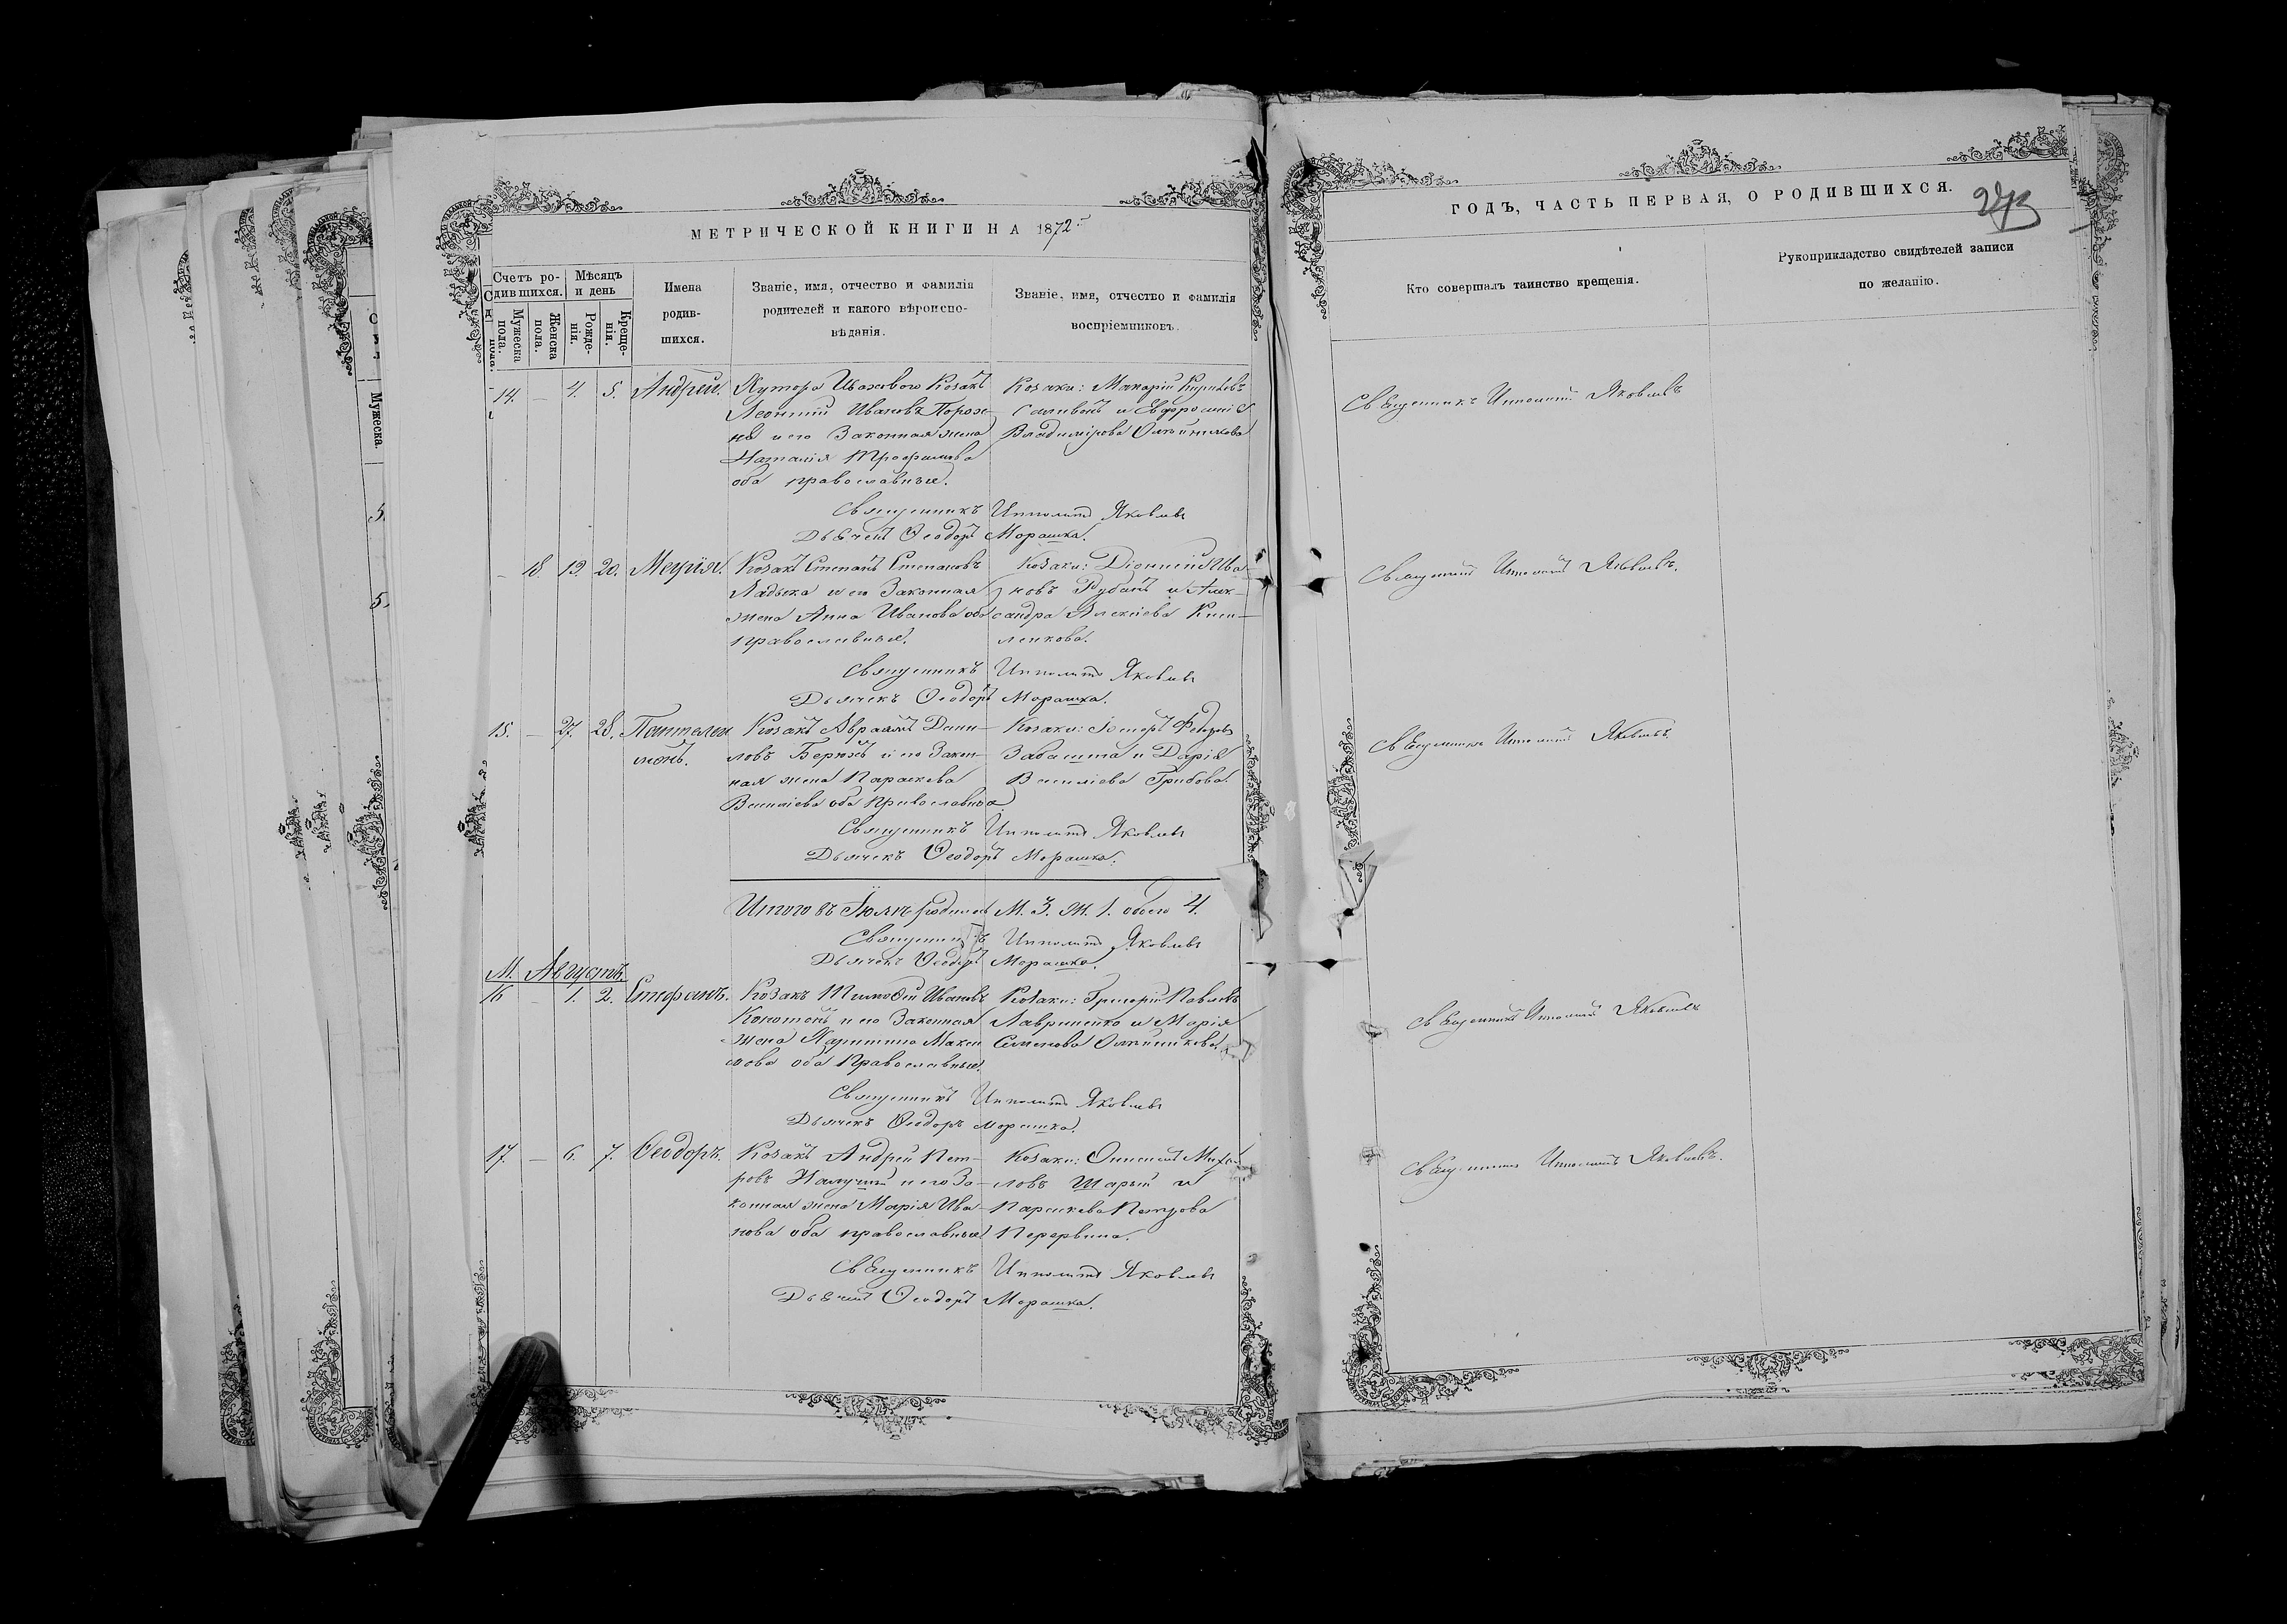 МЕТРИЧЕСКОЙ КНИГИ НА 1872 г.
Счетъ родившихся.
Мужеска пола.
Женска пола.
Мѣсяцъ и день
Рожденія.
Крещенія.
Имена родившихся.
Званіе, имя, отчество и фамилія
родителей и какого вѣроиспо-
вѣданія.
Званіе, имя, отчество и фамилія
воспріемниковъ.
14. — 4. 5. Андрей.
Хутора Козакъ
Леонтій Ивановъ
и его Законная жена
Наталія Трофимова
оба православные.
Козаки: Макарій
и Евфросинія
Владимірова Олейникова
Священникъ Ипполитъ Яковлевъ
Дьячекъ Ѳеодоръ Морашка.
— 18. 19. 20. Марія.
Козакъ Степанъ Степановъ
Ладыка и его Законная
жена Анна Иванова оба
православные.
Козаки: Діонисій Ива-
новъ Рубанъ и Алек-
сандра Алексіева
Священникъ Ипполитъ Яковлевъ
Дьячекъ Ѳеодоръ Морашка.
15. — 27. 28. Пантелеи
монъ.
Козакъ Авраамъ Дани-
ловъ и его Закон-
ная жена Параскева
Василіева оба православные
Козаки:
Забашта и Дарія
Василіева Грибова.
Священникъ Ипполитъ Яковлевъ
Дьячекъ Ѳеодоръ Морашка.
Итого въ Іюлѣ родилось М. 3. Ж. 1. обоего 4.
Священникъ Ипполитъ Яковлевъ
Дьячекъ Ѳеодоръ Морашка.
М. Августъ.
16 — 1. 2. Стефанъ.
Козакъ Тимоѳей Ивановъ
и его Законная
жена Макси
мова оба православные.
Козаки: Григорій Павловъ
Лавриненко и Марія
Семенова Олейникова.
Священникъ Ипполитъ Яковлевъ
Дьячекъ Ѳеодоръ Морашка.
17. — 6. 7. Ѳеодоръ.
Козакъ Андрей Пет-
ровъ и его За-
конная жена Марія Ива-
нова оба православные
Козаки: Михаи
ловъ Шарый и
Параскева Петрова
Перервина.
Священникъ Ипполитъ Яковлевъ
Дьячекъ Ѳеодоръ Морашка.
ГОДЪ, ЧАСТЬ ПЕРВАЯ, О РОДИВШИХСЯ.
Кто совершалъ таинство крещенія.
Рукоприкладство свидѣтелей записи
по желанію.
Священникъ Ипполитъ Яковлевъ
Священникъ Ипполитъ Яковлевъ.
Священникъ Ипполитъ Яковлевъ.
Священникъ Ипполитъ Яковлевъ
Священникъ Ипполитъ Яковлевъ.